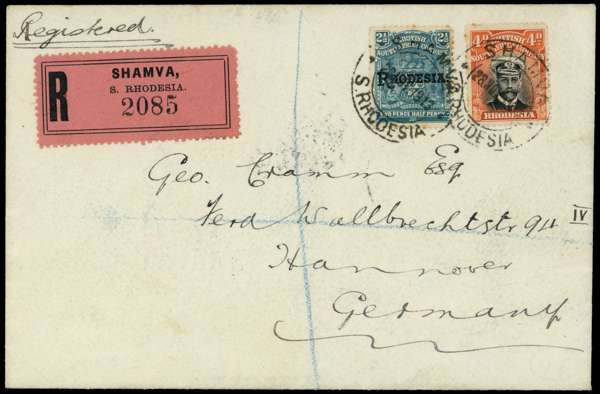 Registered.
R
SHAMVA,
S. RHODESIA.
2085
2½ 2½
BRITISH
SOUTH AFRICA COMPANY
RHODESIA
TWO PENCE HALF PENNY
4D BRITISH 4D
SOUTH AFRICA COMPANY
RHODESIA
SHAMVA
S. RHODESIA
SHAMVA
S. RHODESIA
Geo. Cramm Esq
Ferd Wallbrechtstr 94 IV
Hannover
Germany